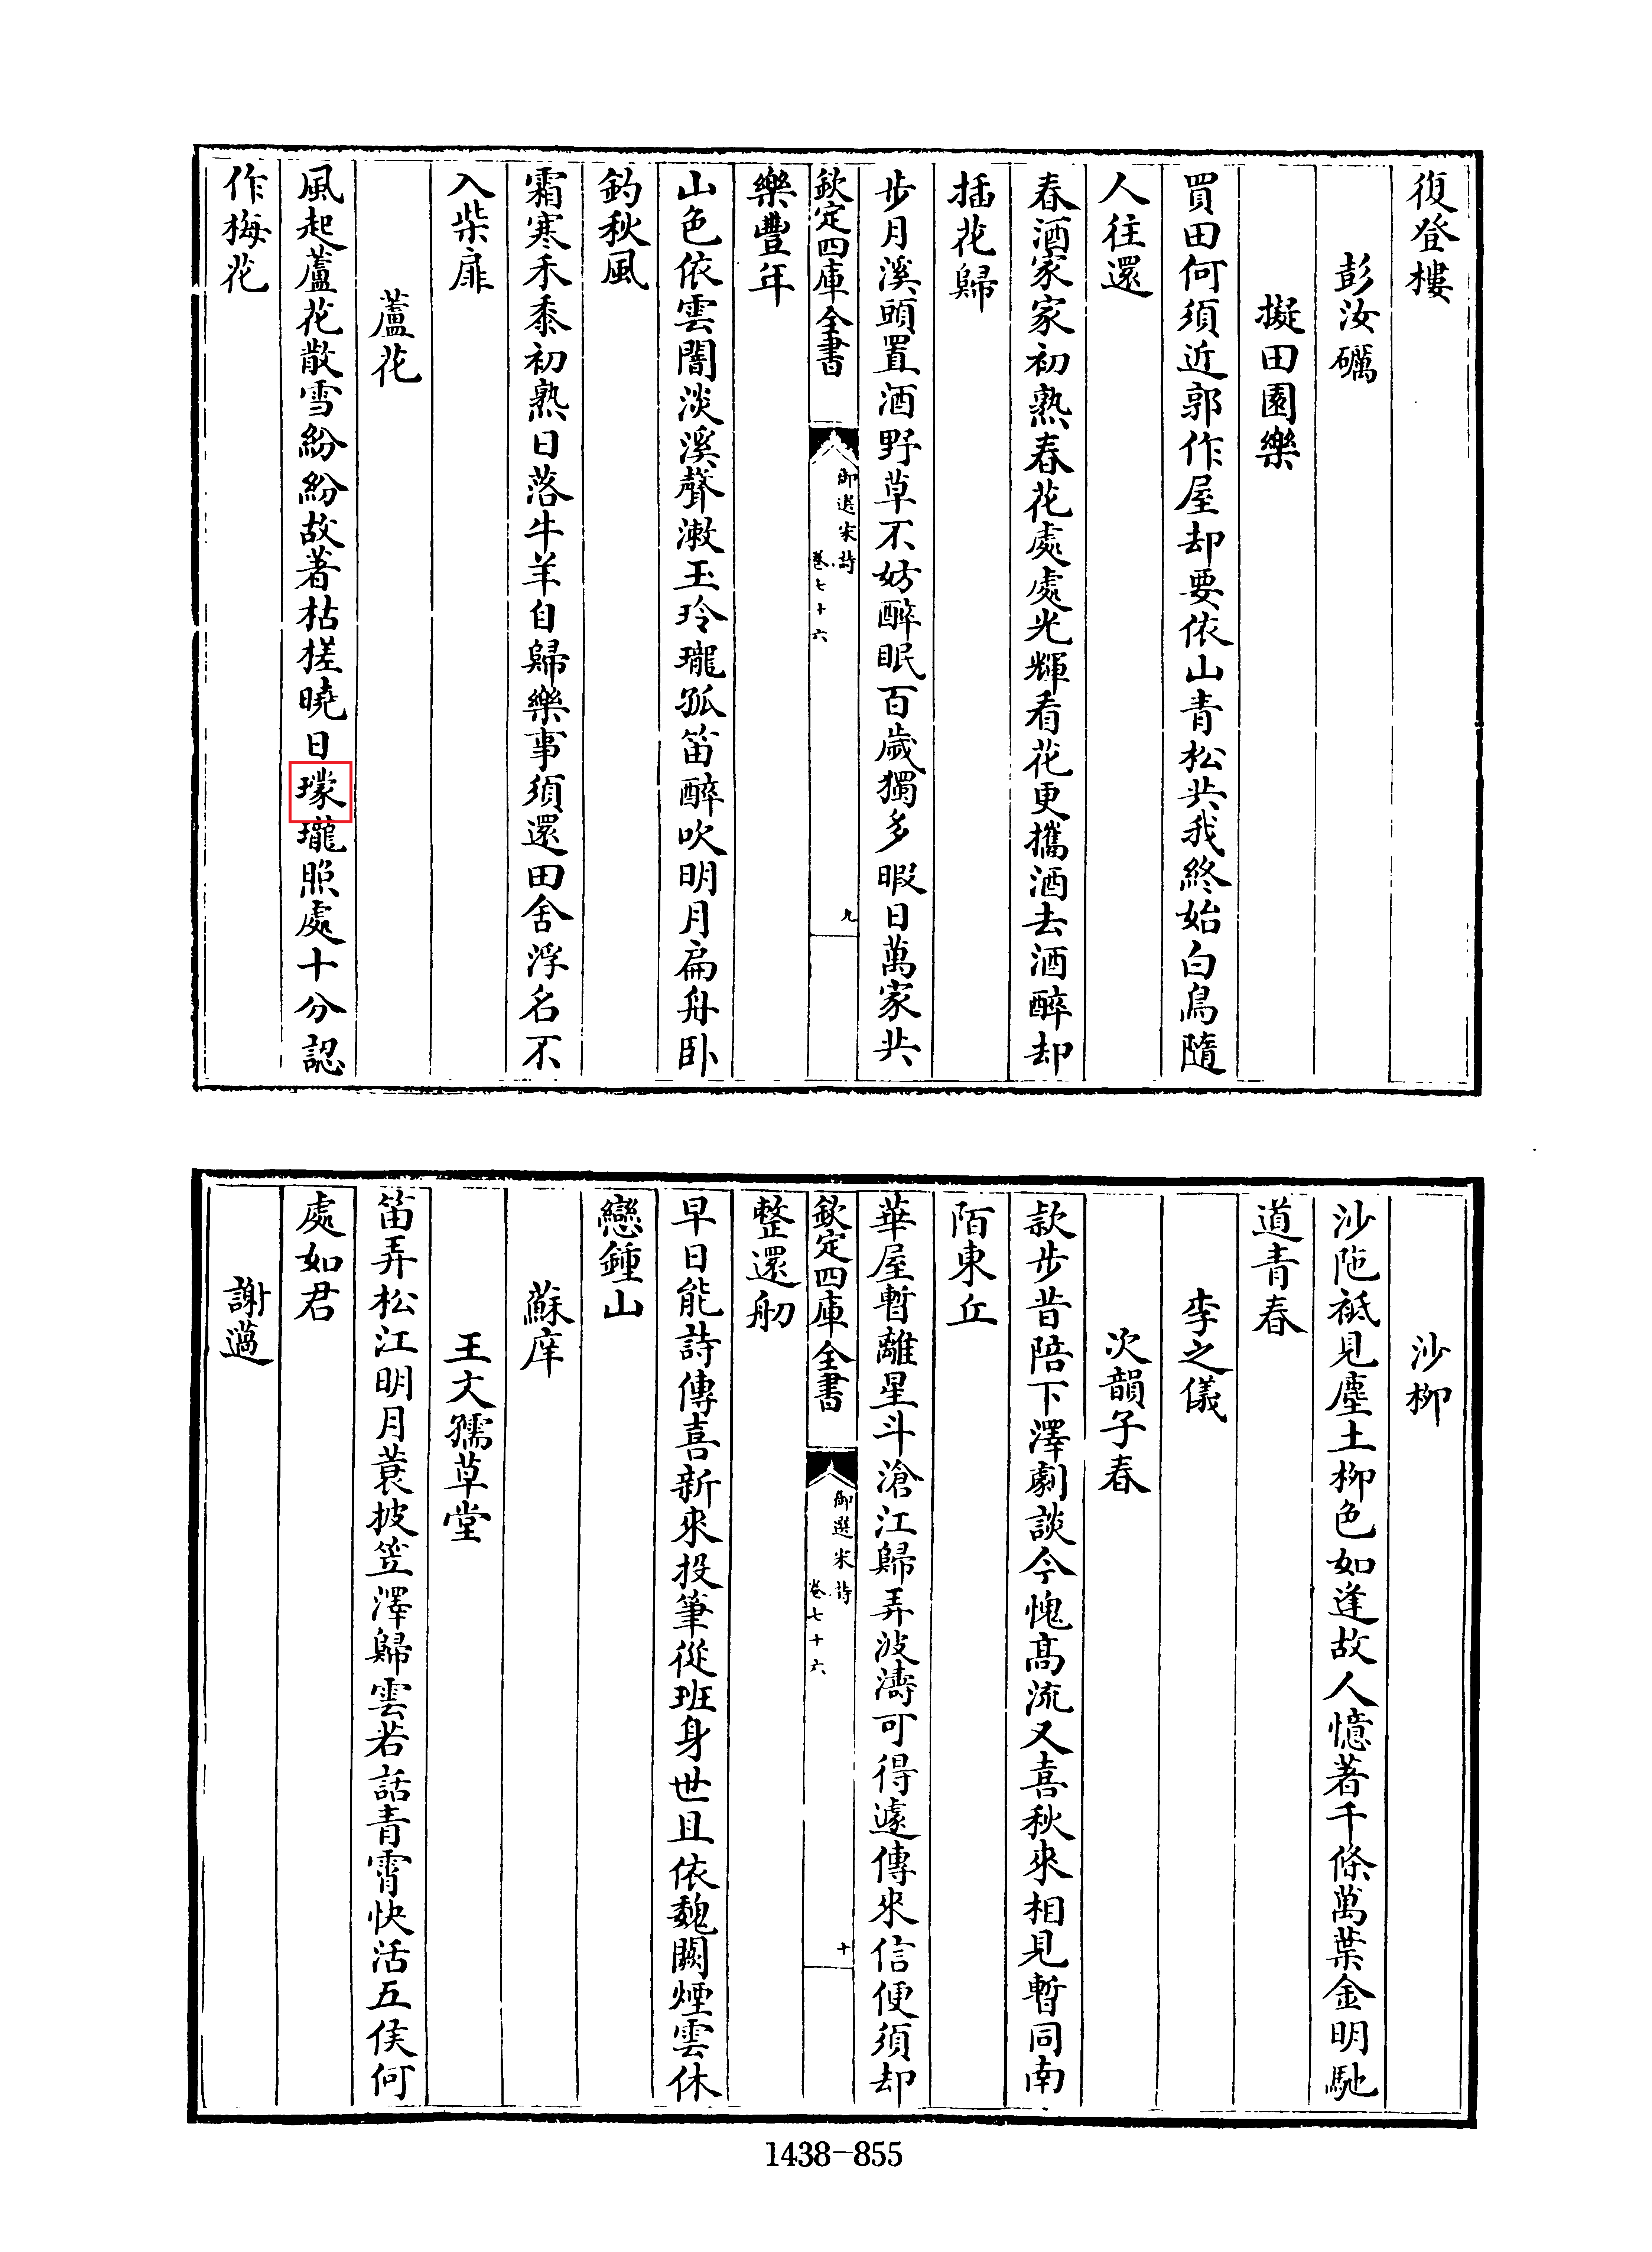 復登樓
彭汝礪
擬田園樂
買田何須近郭作屋却要依山青松共我終始白鳥隨
人往還
春酒家家初熟春花處處光輝看花更攜酒去酒醉却
插花歸
步月溪頭置酒野草不妨醉眠百歲獨多暇日萬家共
欽定四庫全書
御選宋詩
卷七十六
九
樂豐年
山色依雲闇淡溪聲漱玉玲瓏孤笛醉吹明月扁舟卧
釣秋風
霜寒禾黍初熟日落牛羊自歸樂事須還田舍浮名不
入柴扉
蘆花
風起蘆花散雪紛紛故著枯槎曉日瓏照處十分認
作梅花
沙柳
沙陁祗見塵土柳色如逢故人憶著千條萬葉金明馳
道青春
李之儀
次韻子春
款步昔陪下澤劇談今愧髙流又喜秋來相見暫同南
陌東丘
華屋暫離星斗滄江歸弄波濤可得遽傳來信便須却
欽定四庫全書
御選宋詩
卷七十六
十
整還舠
早日能詩傳喜新來投筆從班身世且依魏闕煙雲休
戀鍾山
蘇庠
王文孺草堂
笛弄松江明月蓑披笠澤歸雲若話青霄快活五侯何
處如君
謝薖
1438-855